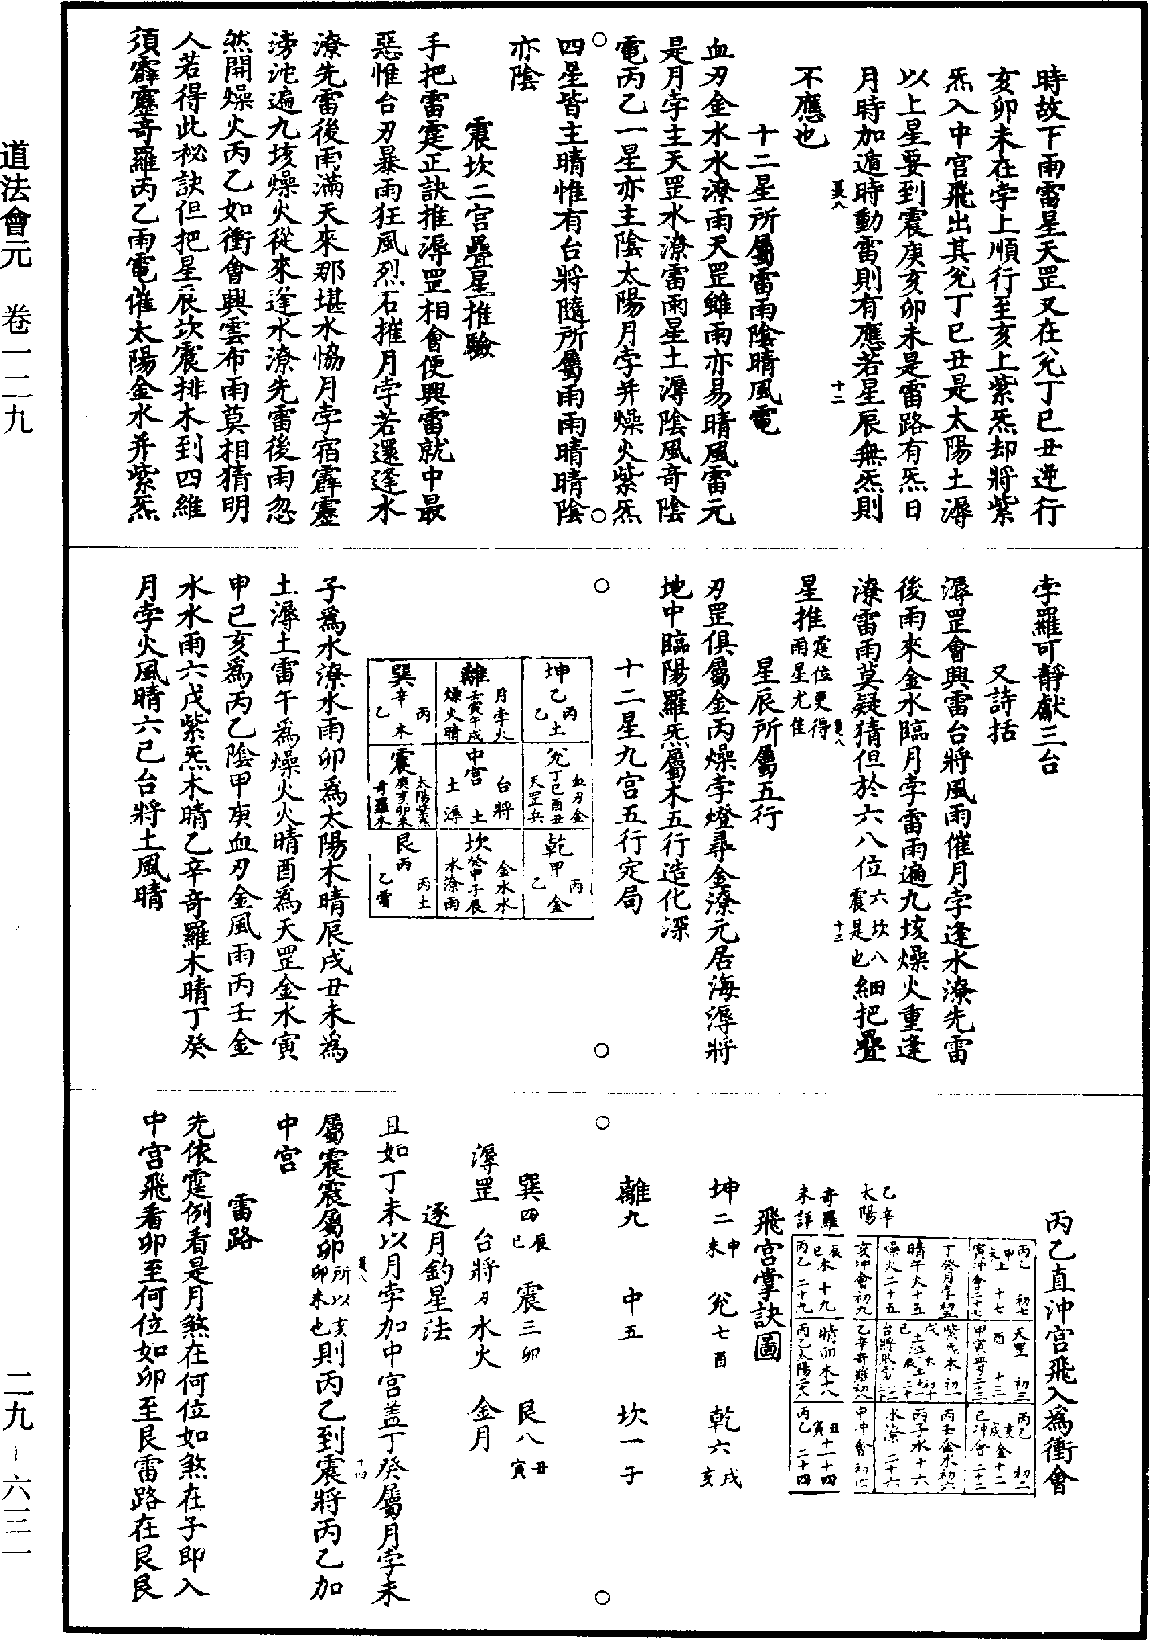 時故下雨雷星天罡又在兊丁巳丑逆行
亥卯未在孛上順行至亥上紫炁却將紫
炁入中宫飛出其兊丁巳丑是太陽土潯
以上星要到震庚亥卯未是雷路有炁日
月時加遁時動雷則有應若星辰無炁則
不應也
十二星所屬雷雨陰晴風電
血刃金水水潦雨天罡雖雨亦易晴風雷元
是月孛主天罡水潦雷雨星土潯陰風奇陰
電丙乙一星亦主陰太陽月孛并燥火紫炁
四星皆主晴惟有台將隨所屬雨雨晴晴陰
亦陰
震坎二宫疊星推驗
手把雷霆正訣推潯罡相會便興雷就中最
惡惟台刃暴雨狂風烈石摧月孛若還逢水
潦先雷後雨滿天來那堪水恊月孛宿霹靂
滂沱遍九垓燥火從來逢水潦先雷後雨忽
然開燥火丙乙如衝會興雲布雨莫相猜明
人若得此秘訣但把星辰坎震排木到四維
須霹靂奇羅丙乙雨電催太陽金水并紫炁
孛羅可靜獻三台
又詩括
潯罡會興雷台將風雨催月孛逢水潦先雷
後雨來金水臨月孛雷雨遍九垓燥火重逢
潦雷雨莫疑猜但於六八位六坎八震是也細把疊
星推霆位更得雨星尤佳
星辰所屬五行
刃罡俱屬金丙燥孛燈尋金潦元居海潯將
地中臨陽羅炁屬木五行造化深
十二星九宫五行定局
坤乙 丙乙土
離壬寅午戌 月孛火 燥火晴
巽辛 丙乙木
兊丁巳酉丑 血刃金 天罡兵
中宫土 台將 土潯
震庚亥卯未 太陽紫炁 奇羅木
乾甲 丙乙金
坎癸申子辰 金水水 水潦雨
艮丙 丙土 乙雷
子爲水潦水雨卯爲太陽木晴辰戌丑未爲
土潯土雷午爲燥火火晴酉爲天罡金水寅
申巳亥爲丙乙陰甲庚血刃金風雨丙壬金
水水雨六戊紫炁木晴乙辛奇羅木晴丁癸
月孛火風晴六己台將土風晴
丙乙直沖宫飛入爲衝會
飛宫掌訣圖
坤二未申 兊七酉 乾六戌亥
離九 中五 坎一子
巽四辰巳 震三卯 艮八丑寅
潯罡 台將刃水火 金月
逐月釣星法
且如丁未以月孛加中宫蓋丁癸屬月孛未
屬震震屬卯所以亥卯未也則丙乙到震將丙乙加
中宫
雷路
先依霆例看是月煞在何位如煞在子即入
中宫飛看卯至何位如卯至艮雷路在艮艮
道法會元 卷一二九
二九－六三一